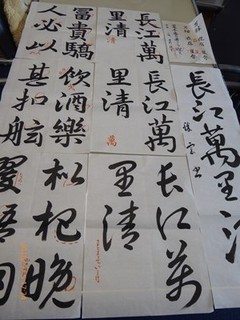 長江萬里清
長江萬
里清
長江萬
里清
萬
长江萬
里清
富貴驕
人必以
飲酒樂
甚扣舷
枇杷晚
翠梧